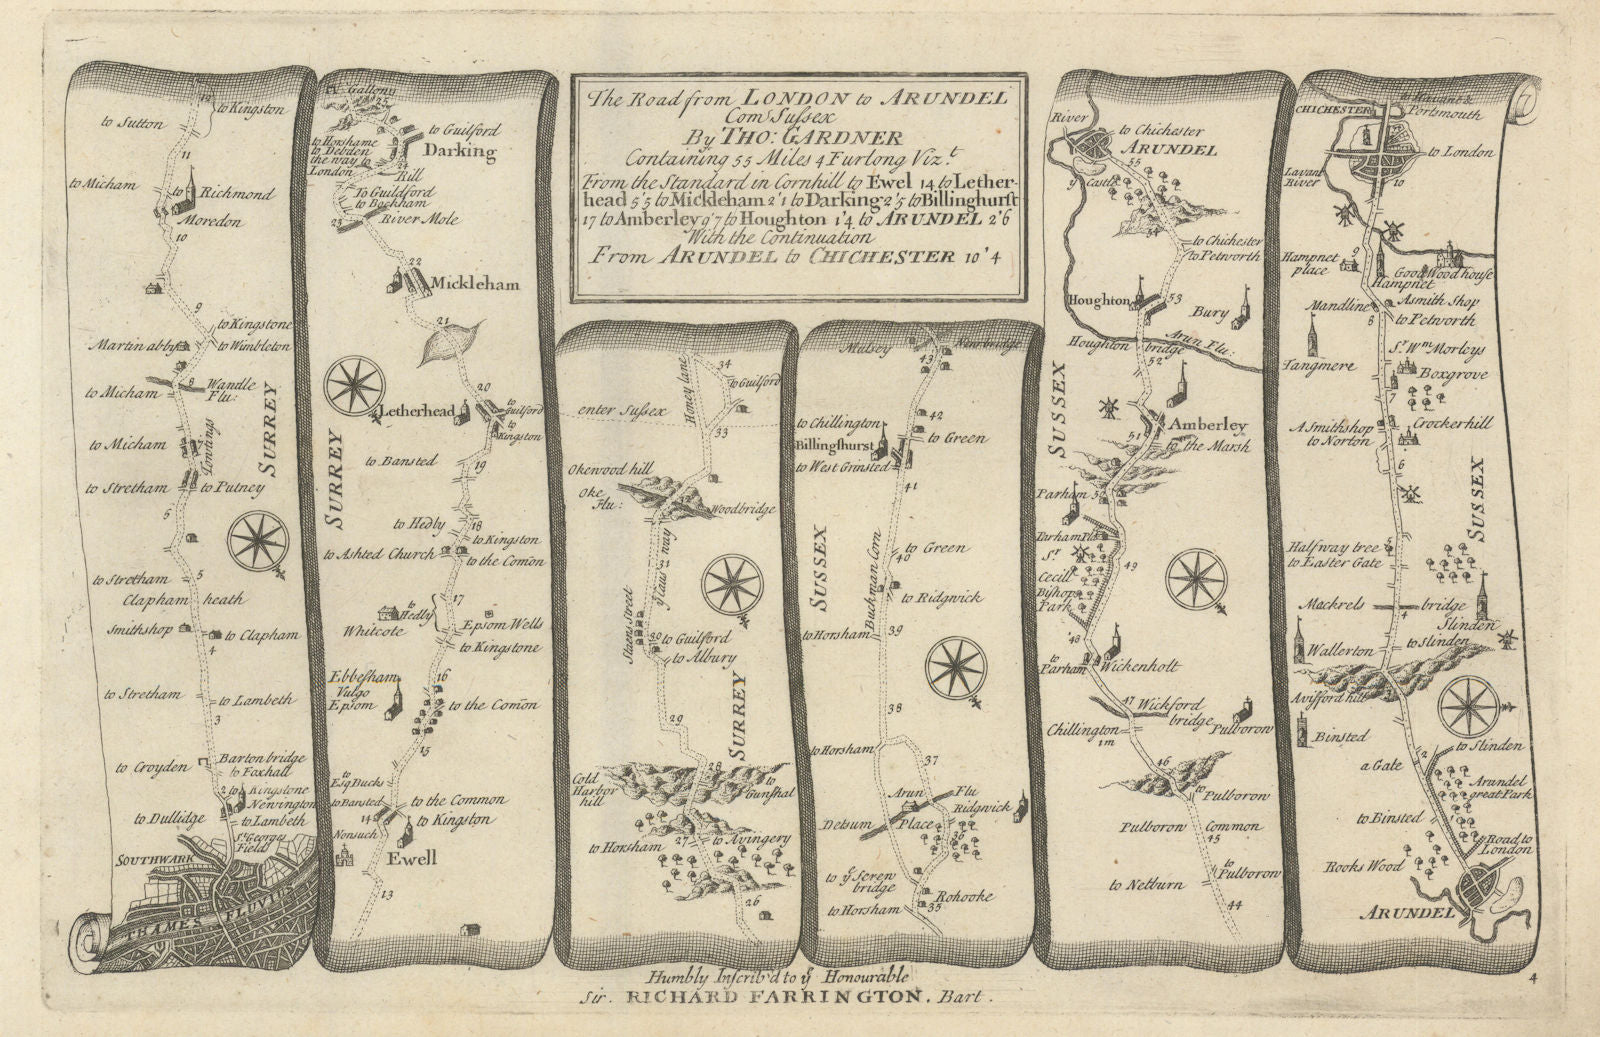 The Road from LONDON to ARUNDEL
Com Suſsex
By THO: GARDNER
Containing 55 Miles 4 Furlong Viz.t
From the Standard in Cornhill to Ewel 14 to Lether-
head 5'5 to Mickleham 2'1 to Darking 2'5 to Billinghurſt
17 to Amberley 9'7 to Houghton 1'4 to ARUNDEL 2'6
With the Continuation
From ARUNDEL to CHICHESTER 10'4
12
to Kingston
to Sutton
11
to Micham
to Richmond
Moredon
10
9
to Kingstone
Martin abby
to Wimbleton
8
Wandle
Flu:
to Micham
SURREY
to Micham
Towtings
to Stretham
to Putney
6
5
to Stretham
Clapham heath
Smithshop
to Clapham
4
to Stretham
to Lambeth
3
Barton bridge
to Croyden
to Foxhall
2
to Kingstone
Newington
to Dullidge
to Lambeth
St Georges
Fields
SOUTHWARK
THAMES FLUVIUS
Gallows
25
to Guilford
to Horshame
to Debden
the way to
London
Darking
24
Rill
To Guildford
to Bockham
River Mole
23
22
Mickleham
21
20
Letherhead
to
Guilford
to
Kingston
to Bansted
19
SURREY
to Hedly
18
to Kingston
to Ashted Church
to the Comōn
17
to
Hedly
Whitcote
Epsom Wells
to Kingstone
Ebbesham
Vulgo
Epsom
16
to the Comōn
15
to
Esq Bucks
to Bansted
to the Common
14
to Kingston
Nonsuch
Ewell
13
34
to Guilford
Honey lane
enter Suſsex
33
Okewood hill
Oke
Flu:
Woodbridge
ye Caus way
31
Stuen Street
30
to Guilford
to Albury
SURREY
29
28
Cold
Harbor
hill
to
Gunshal
27
to Avingery
to Horsham
26
Mulsey
Newbridge
43
42
to Chillington
to Green
Billingſhurst
to West Grinsted
41
SUSSEX
Buckman Corn
to Green
40
to Ridgwick
to Horsham
39
38
to Horsham
37
Arun Flu
Ridgwick
Detsum Place
36
to ye Seren
bridge
Rohooke
to Horsham
35
River
to Chichester
ARUNDEL
55
ye Castle
54
to Chichester
to Petworth
Houghton
53
Bury
Houghton bridge
Arun Flu:
52
SUSSEX
Amberley
51
to the Marsh
Parham
50
Parham Pk
Sr
Cecill
Bishops
Park
49
48
to
Parham
Wickenholt
47
Wickford
bridge
Chillington
1m
Pulborow
46
to Pulborow
Pulborow Common
45
to
Pulborow
to Netburn
44
to Havant &
Portsmouth
CHICHESTER
to London
Lavant
River
10
Hampnet
place
9
Good Wood house
Hampnet
Mandline
Asmith Shop
8
to Petworth
Tangmere
Sr Wm Morleys
Boxgrove
7
A Smithshop
to Norton
Crockerhill
6
SUSSEX
Halfway tree
5
to Easter Gate
Mackrels bridge
4
Slinden
Wallerton
to Slinden
Avifford hill
3
Binsted
to Slinden
a Gate
2
Arundel
great Park
to Binsted
1
Road to
London
Rooks Wood
ARUNDEL
Humbly Inſcrib'd to ye Honourable
Sir. RICHARD FARRINGTON. Bart.
4